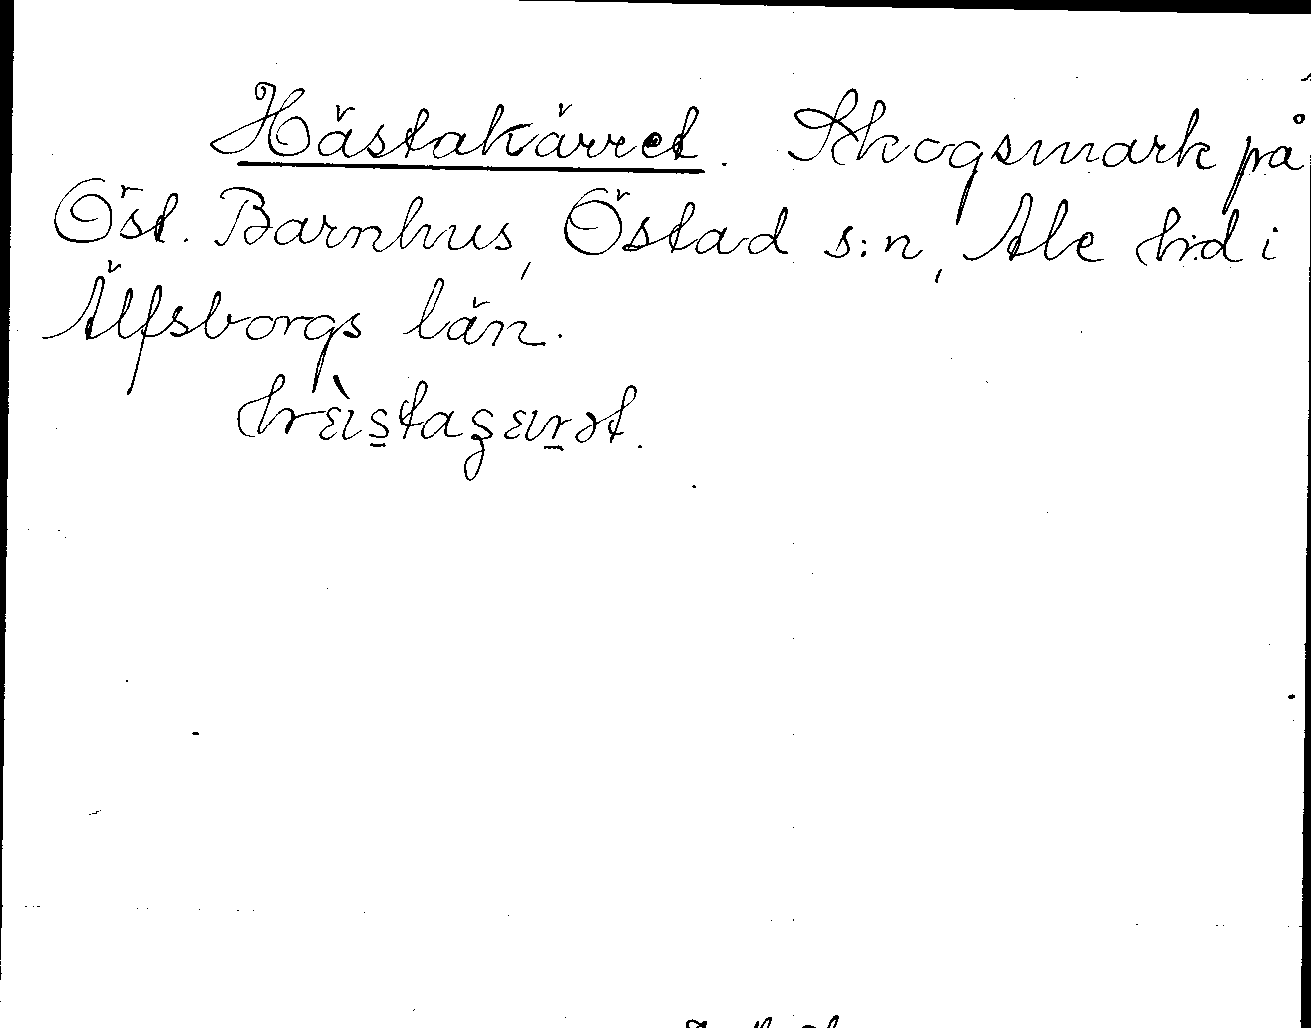 Hästakärret. Skogsmark på
Öst. Barnhus, Östad s:n, Ale h:d i
Älfsborgs län.